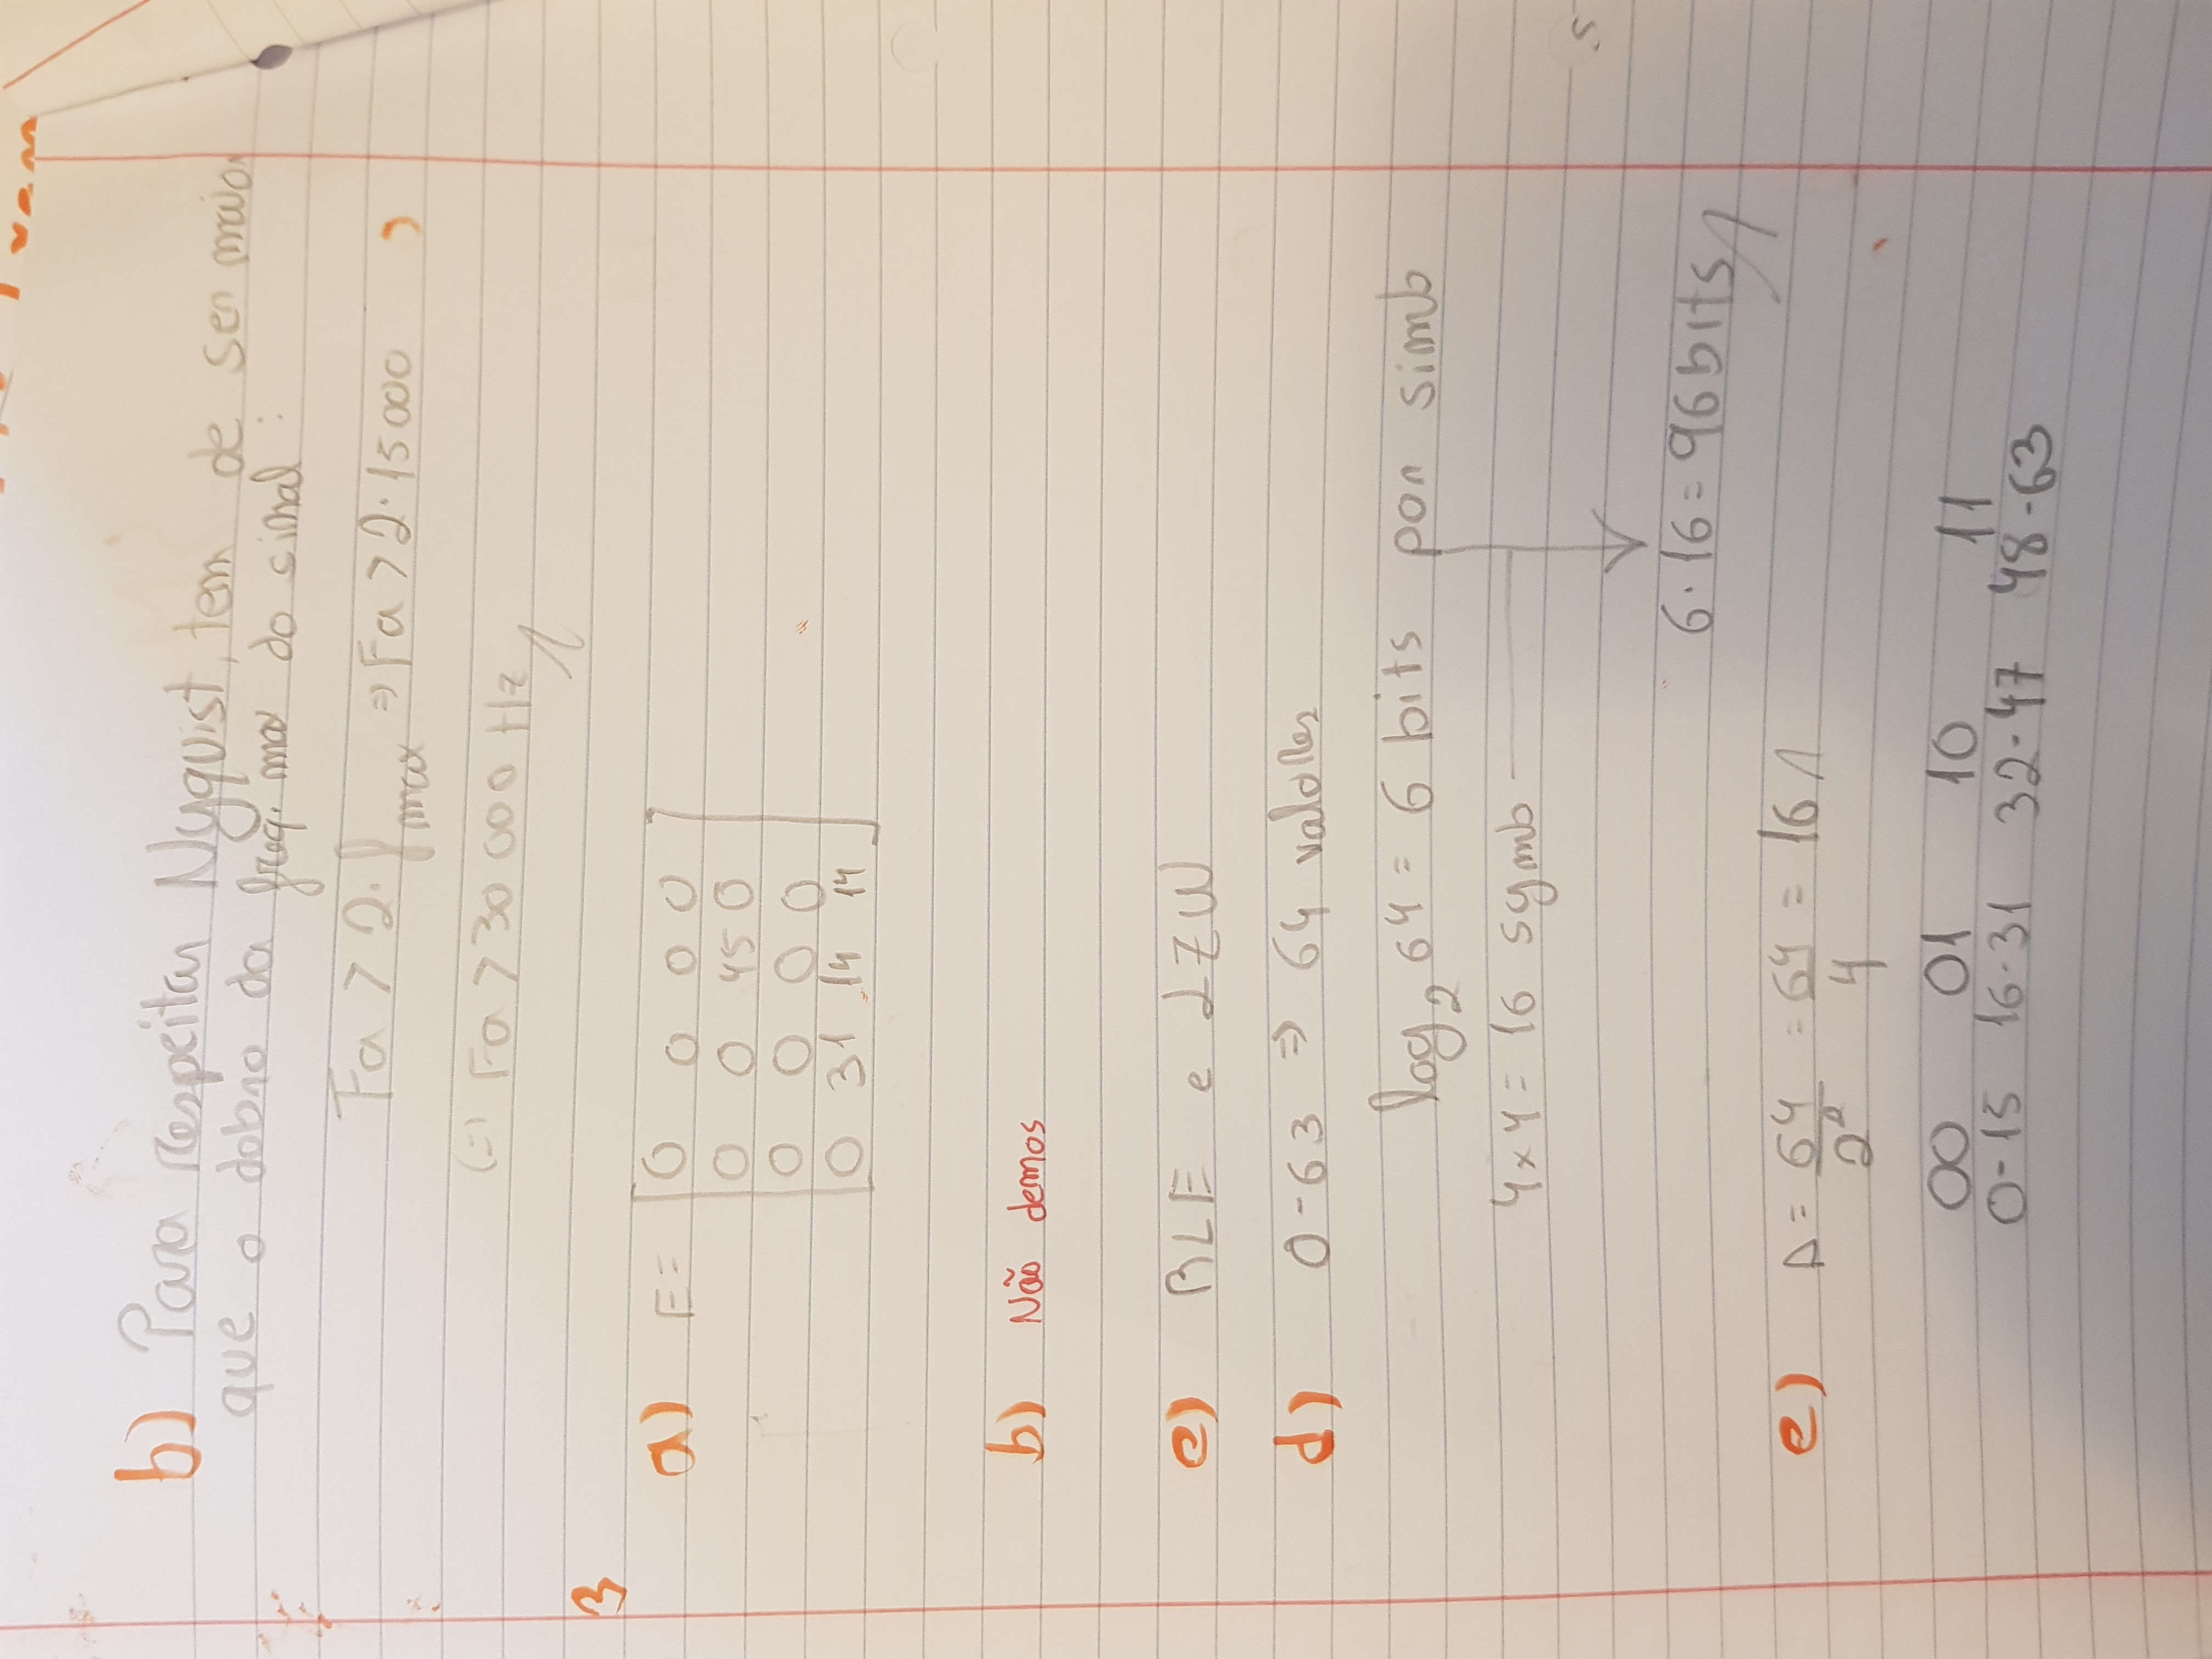 b) Para respeitar Nyquist, tem de ser maior
que o dobro da freq. max do sinal :
Fa > 2 . f max => Fa > 2 . 15000
(=) Fa > 30 000 Hz
3
a) E = [0 0 0 0
0 0 45 0
0 0 0 0
0 31 14 14]
b) Não demos
c) RLE e LZW
d) 0-63 => 64 valores
log2 64 = 6 bits por simb
4 x 4 = 16 symb
6 . 16 = 96 bits
e) Δ = 64/2² = 64/4 = 16
00 01 10 11
0-15 16-31 32-47 48-63